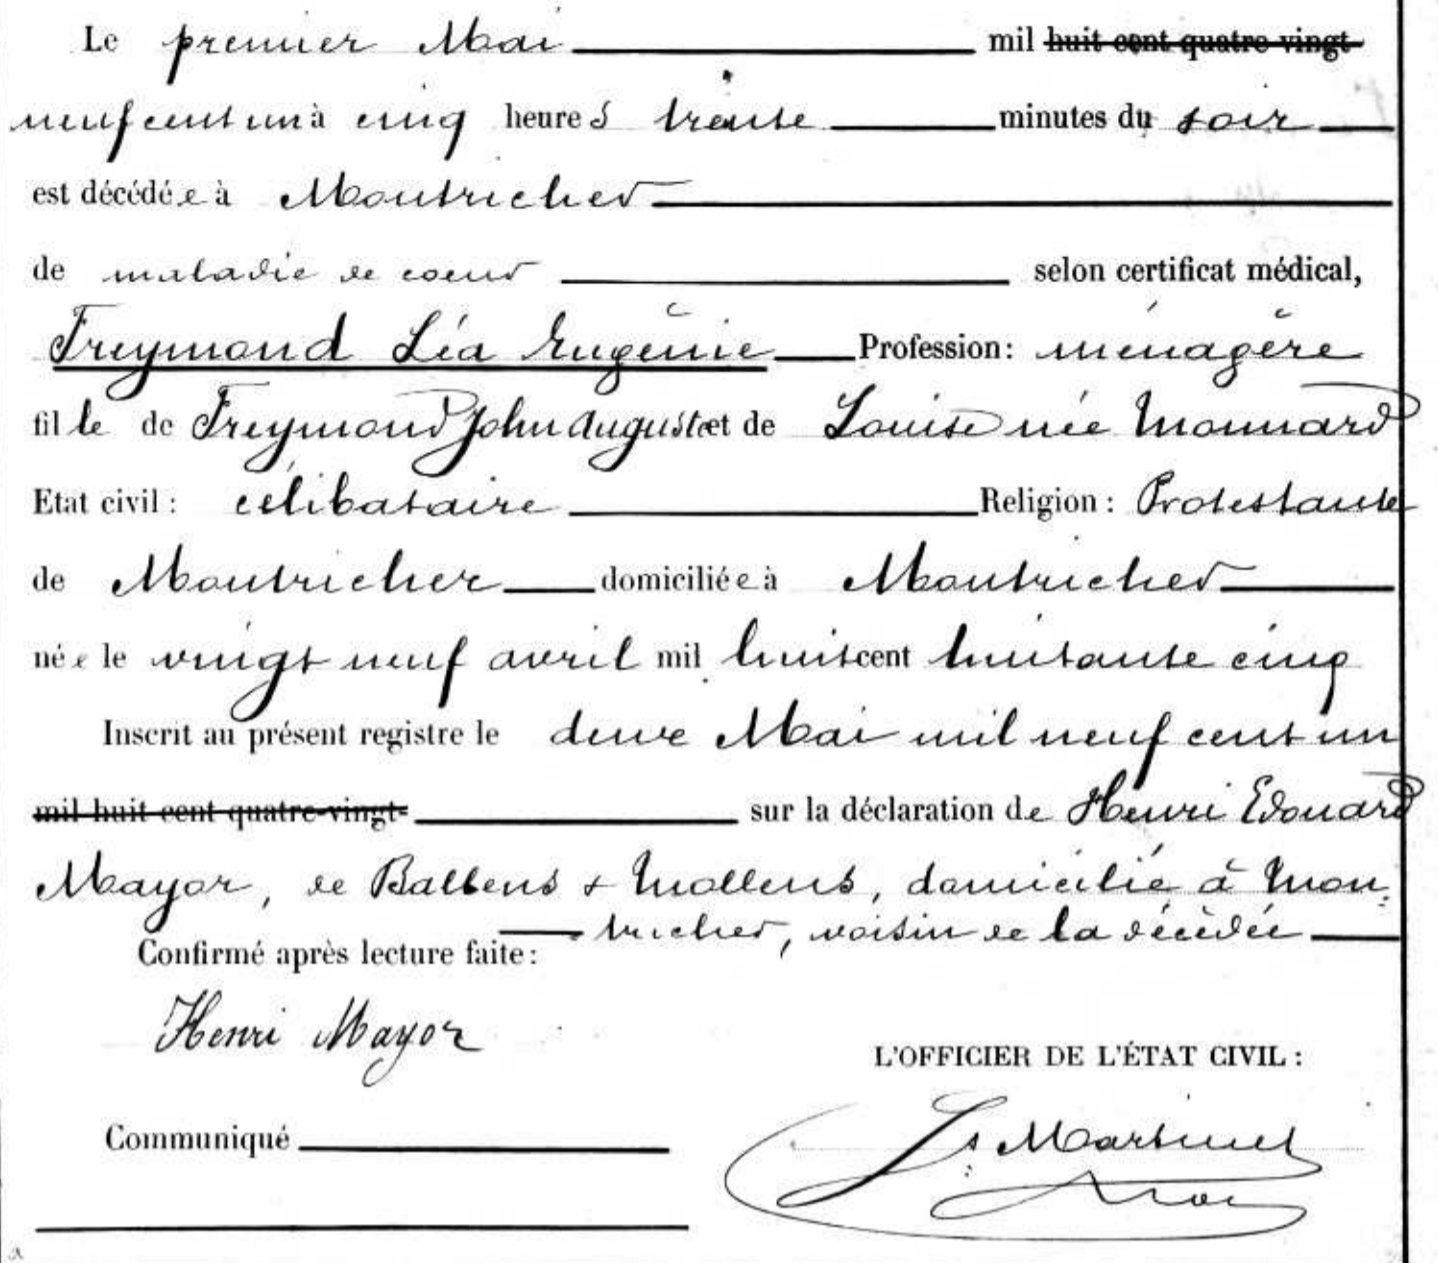 Le premier Mai mil huit cent quatre vingt
neuf cent un à cinq heures trente minutes du soir
est décédée à Montricher
de maladie de coeur selon certificat médical,
Freymond Léa Eugénie Profession: ménagère
fille de Freymond John Auguste et de Louise née Monnard
Etat civil: célibataire Religion: Protestante
de Montricher domiciliée à Montricher
née le vingt neuf avril mil huit cent huitante cinq
Inscrit au présent registre le deux Mai mil neuf cent un
mil huit cent quatre-vingt- sur la déclaration de Henri Edouard
Mayor, de Ballens & Mollens, domicilié à Mon-
tricher, voisin de la décédée
Confirmé après lecture faite:
Henri Mayor
L'OFFICIER DE L'ÉTAT CIVIL:
Ls Martinet
Communiqué